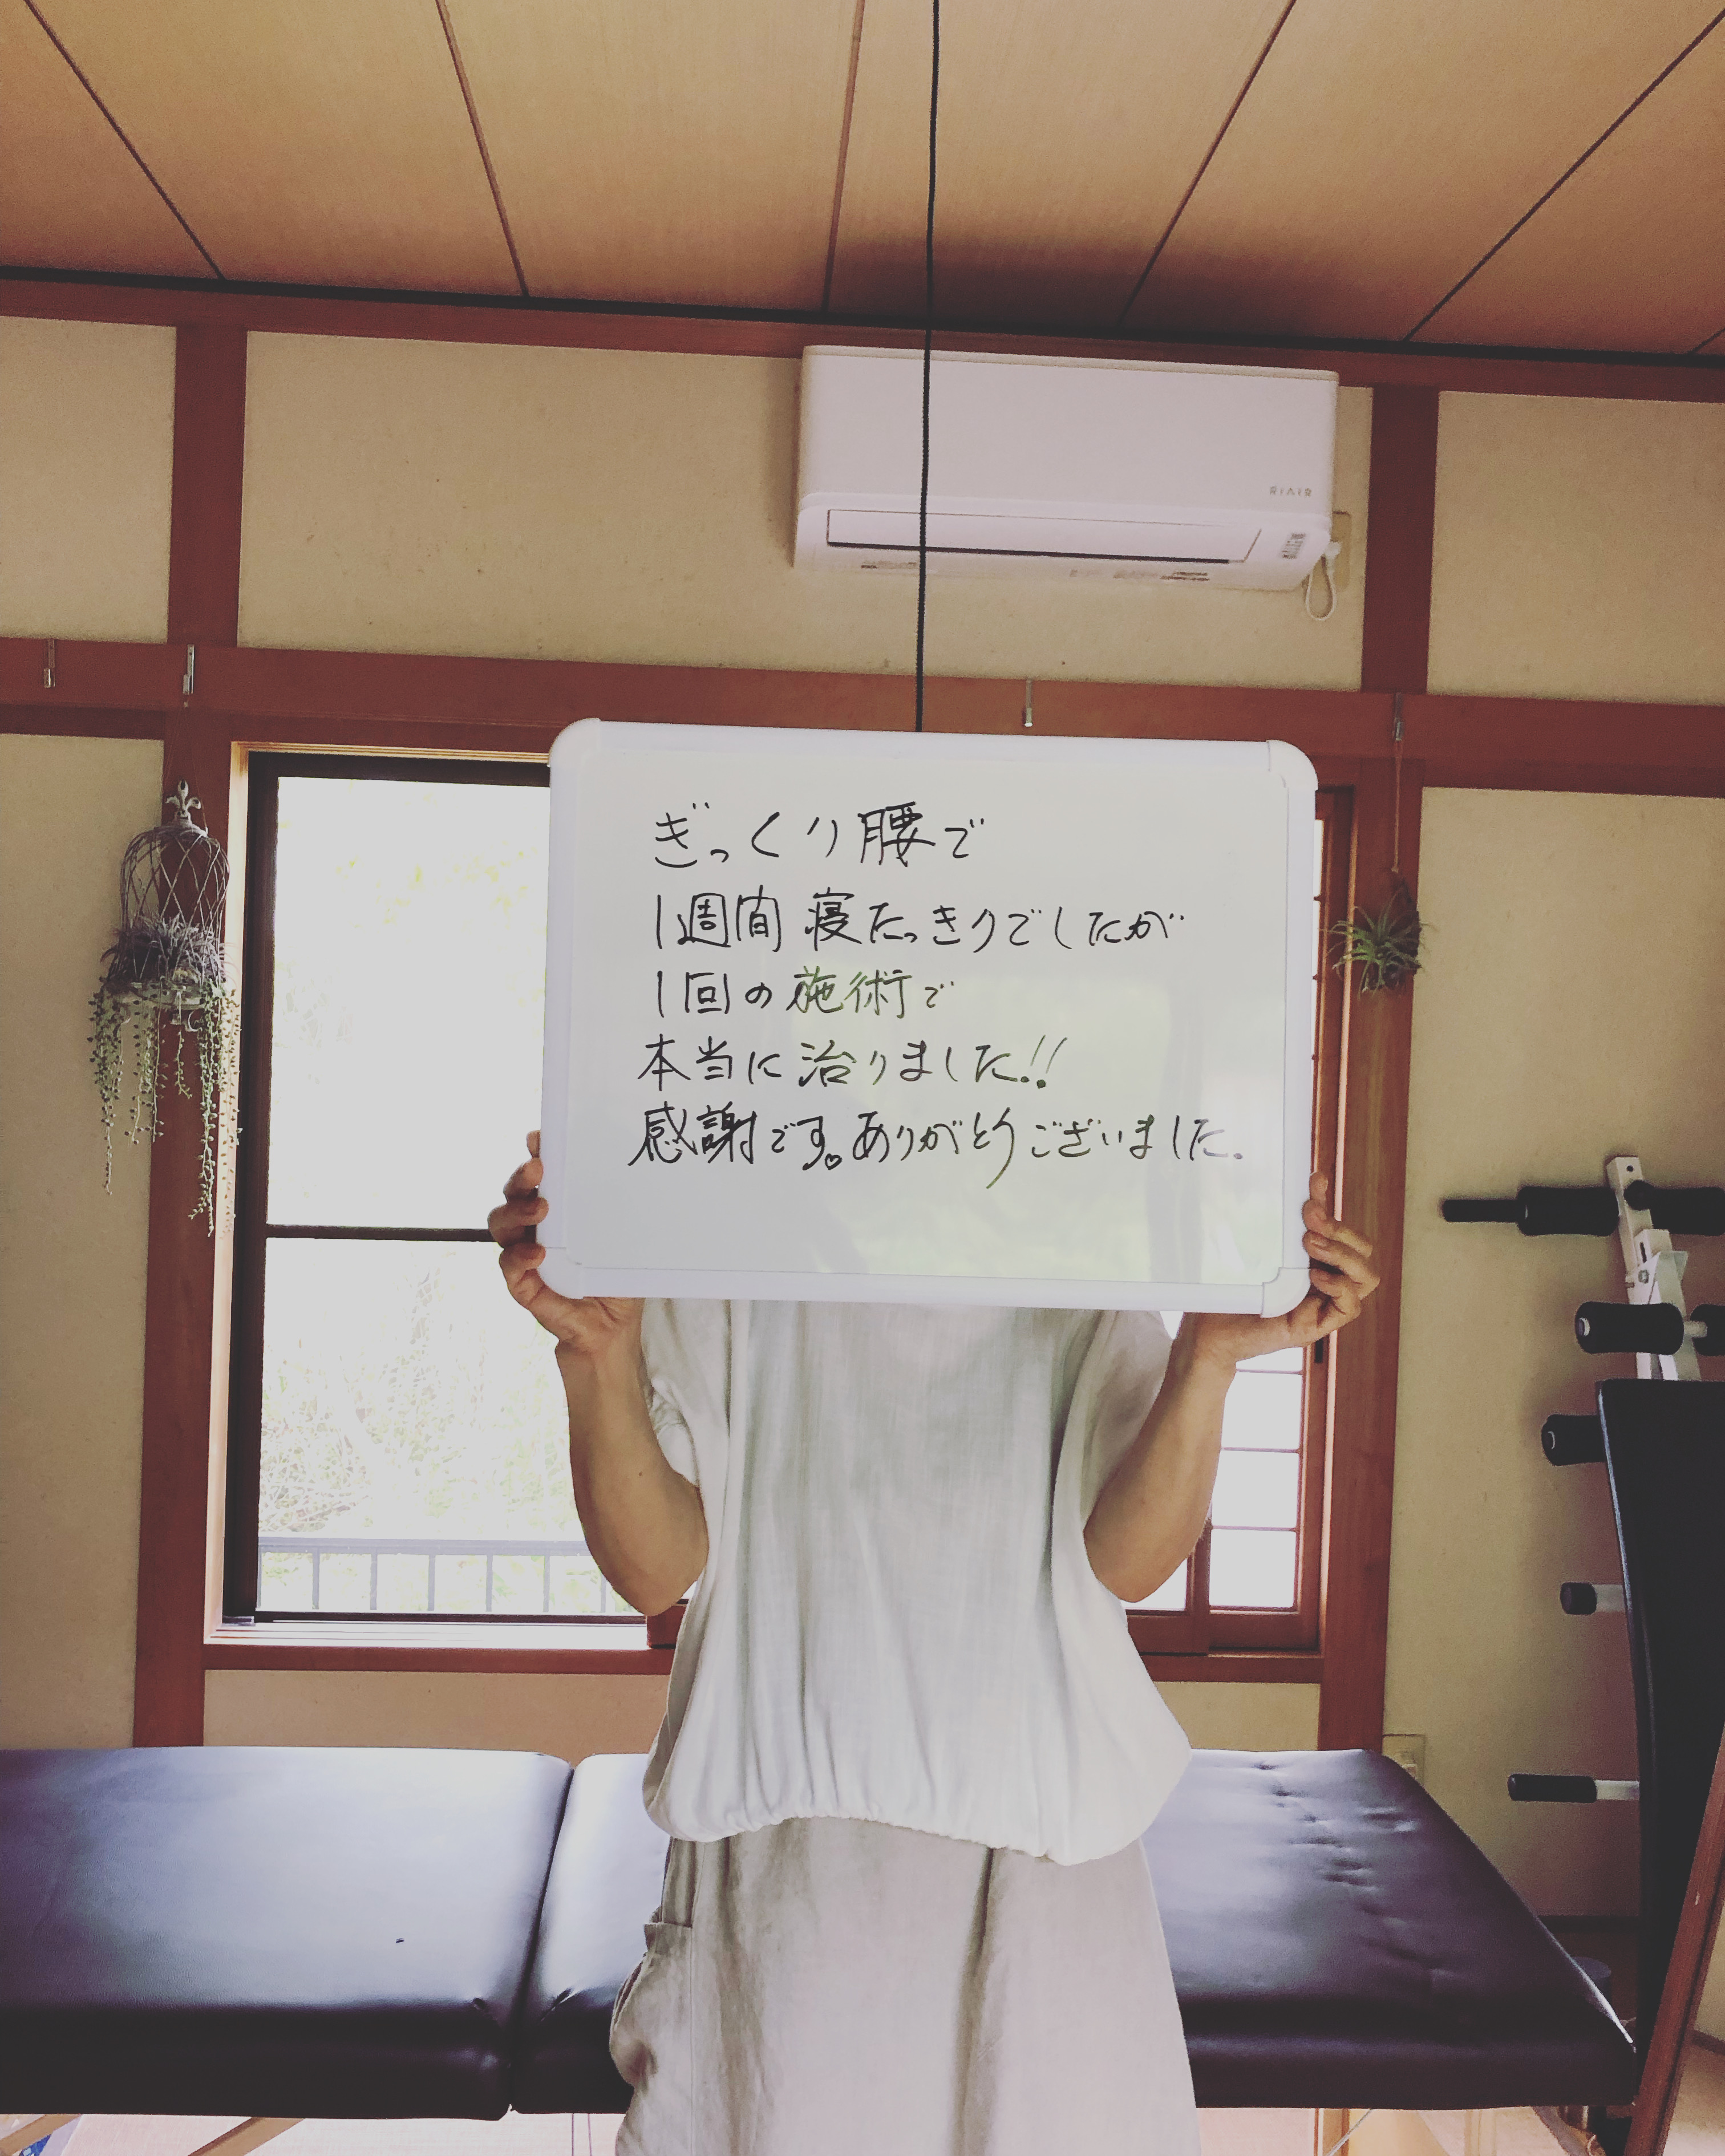 RIAIR
ぎっくり腰で
1週間寝たっきりでしたが
1回の施術で
本当に治りました!!
感謝です。ありがとうございました。